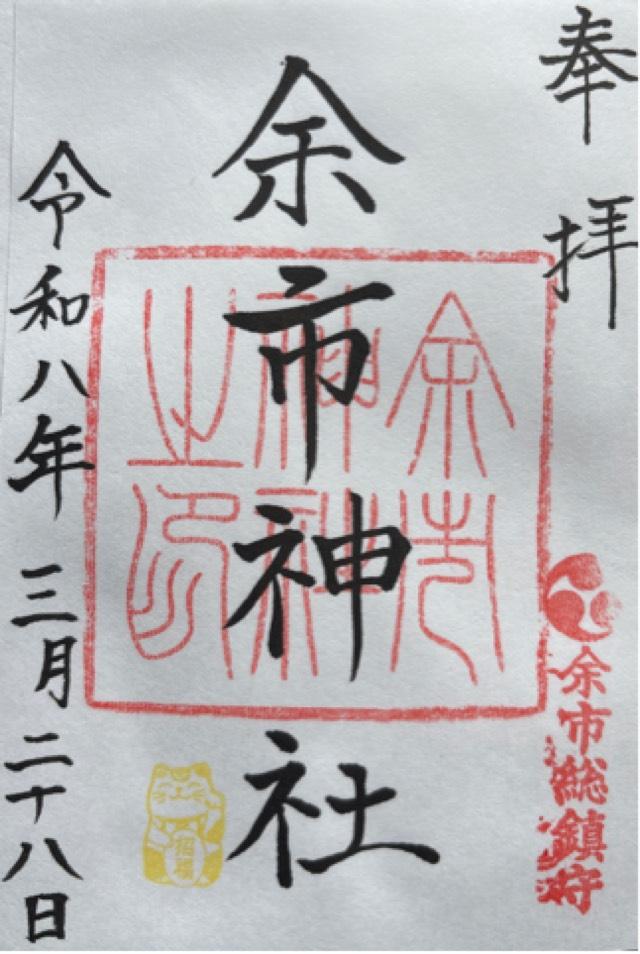 奉拝
余市総鎮守
余市神社
余市神社之印
令和八年三月二十八日
招福